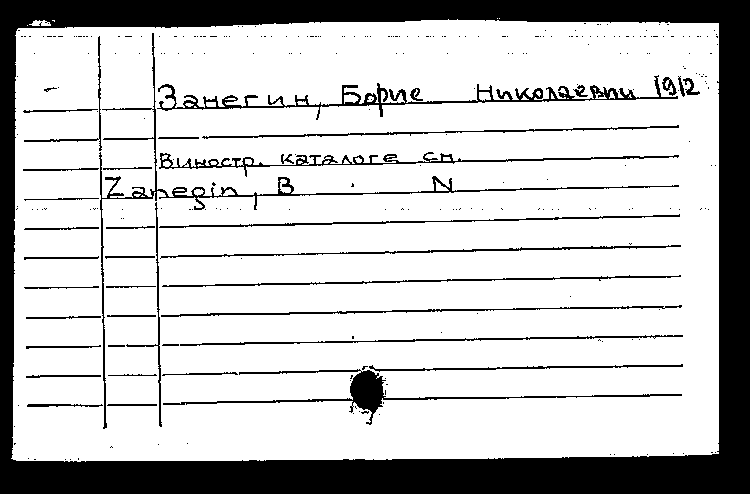 Занегин, Борис Николаевич 1912
В иностр. каталоге см.
Zanegin, B N